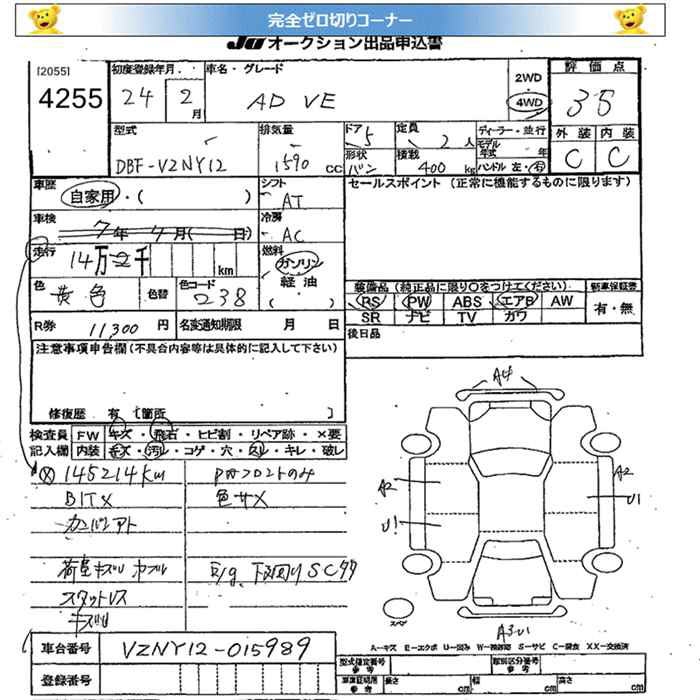 完全ゼロ切りコーナー
JU オークション出品申込書
[2055]
4255
初度登録年月
24 2月
車名・グレード
AD VE
2WD
4WD
評価点
3.5
外装 内装
C C
型式
DBF-VZNY12
排気量
1590 CC
ドア 5
形状 バン
定員 2人
積載 400 kg
ディーラー・並行
モデル年式 年
ハンドル 左・右
車歴
自家用・( )
シフト
AT
セールスポイント (正常に機能するものに限ります)
車検
7年 4月( 日)
冷房
AC
走行
14万2千 km
燃料
ガソリン
軽油
( )
色
黄色
色替
色コード
238
装備品 (純正品に限り○をつけてください)
新車保証書
RS PW ABS エアB AW
有・無
SR ナビ TV カワ
R券 11,300 円
名変通知期限 月 日
後日品
注意事項申告欄 (不具合内容等は具体的に記入して下さい)
修復歴 有 [箇所 ]
検査員 FW キズ・飛石・ヒビ割・リペア跡・×要
記入欄 内装 キズ・汚れ・コゲ・穴・欠し・キレ・破レ
145214km
PWフロントのみ
色サメ
荷室キズ
E/g 下廻り SC
スタットレス
A4
A2
U1
A2
U1
スペア
A3U1
A-キズ E-エクボ U-凹み W-補修跡 S-サビ C-腐食 XX-交換済
車台番号
VZNY12-015989
型式指定番号 参考
類別区分番号 参考
登録番号
車庫証明用 参考
長さ cm
幅 cm
高さ cm